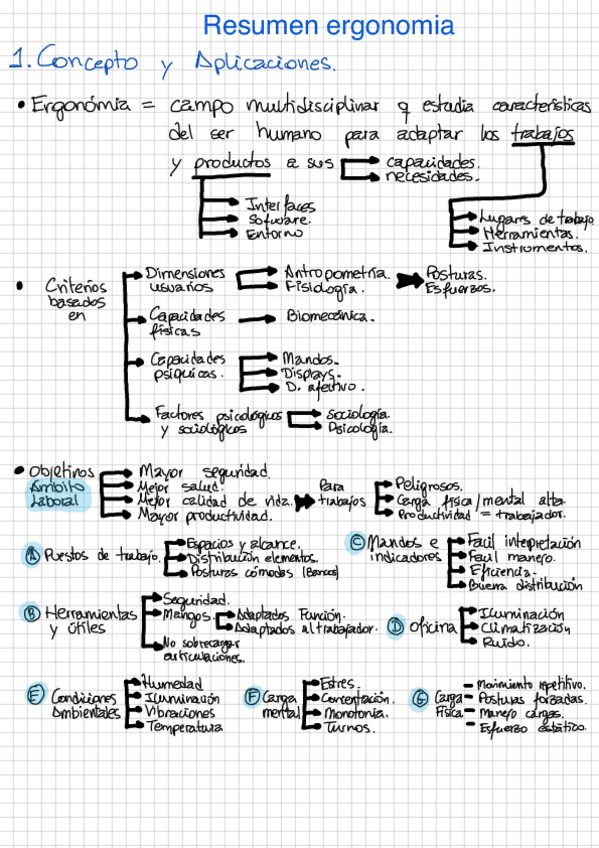 Resumen ergonomia
1. Concepto y Aplicaciones.
• Ergonómia = campo multidisciplinar q estudia características
del ser humano para adaptar los trabajos
y productos a sus capacidades.
necesidades.
Interfaces
Sofware.
Entorno
Lugares de trabajo
Herramientas.
Instrumentos.
• Criterios basados en
Dimensiones usuarios
Antropometría.
Fisiología.
Posturas.
Esfuerzos.
Capacidades físicas
Biomecánica.
Capacidades psiquicas.
Mandos.
Displays.
D. afectivo.
Factores psicológicos y sociológicos
Sociología.
Psicología.
• Objetivos Ámbito Laboral
Mayor seguridad.
Mejor salud.
Mejor calidad de vida.
Mayor productividad.
Para trabajos
Peligrosos.
Carga física/mental alta.
Productividad = trabajador.
A Puestos de trabajo.
Espacios y alcance.
Distribución elementos.
Posturas cómodas (Bancos)
C Mandos e indicadores
Facil interpretación
Facil manejo.
Eficiencia.
Buena distribución
B Herramientas y útiles
Seguridad.
Mangos.
Adaptados Función.
Adaptados al trabajador.
No sobrecargar articulaciones.
D Oficina
Iluminación
Climatización
Ruido.
E Condiciones Ambientales
Humedad
Iluminación
Vibraciones
Temperatura
F Carga mental
Estres.
Concentración.
Monotonia.
Turnos.
G Carga Física
- Movimiento repetitivo.
- Posturas forzadas.
- Manejo cargas.
- Esfuerzo estático.